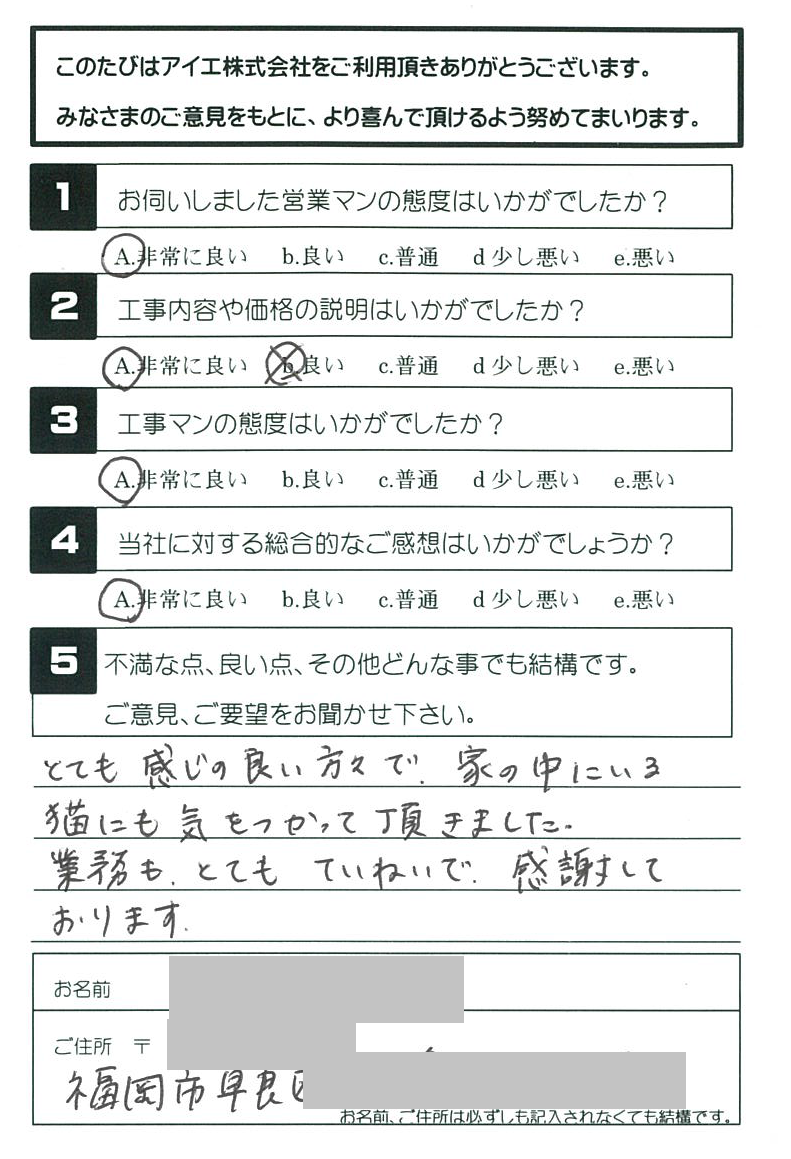 このたびはアイエ株式会社をご利用頂きありがとうございます。
みなさまのご意見をもとに、より喜んで頂けるよう努めてまいります。
1 お伺いしました営業マンの態度はいかがでしたか？
A.非常に良い b.良い c.普通 d 少し悪い e.悪い
2 工事内容や価格の説明はいかがでしたか？
A.非常に良い b.良い c.普通 d 少し悪い e.悪い
3 工事マンの態度はいかがでしたか？
A.非常に良い b.良い c.普通 d 少し悪い e.悪い
4 当社に対する総合的なご感想はいかがでしょうか？
A.非常に良い b.良い c.普通 d 少し悪い e.悪い
5 不満な点、良い点、その他どんな事でも結構です。
ご意見、ご要望をお聞かせ下さい。
とても 感じの良い方々で、家の中にいる
猫にも 気をつかって頂きました。
業務も、とても ていねいで、感謝して
おります。
お名前
ご住所 〒
福岡市早良区
お名前、ご住所は必ずしも記入されなくても結構です。